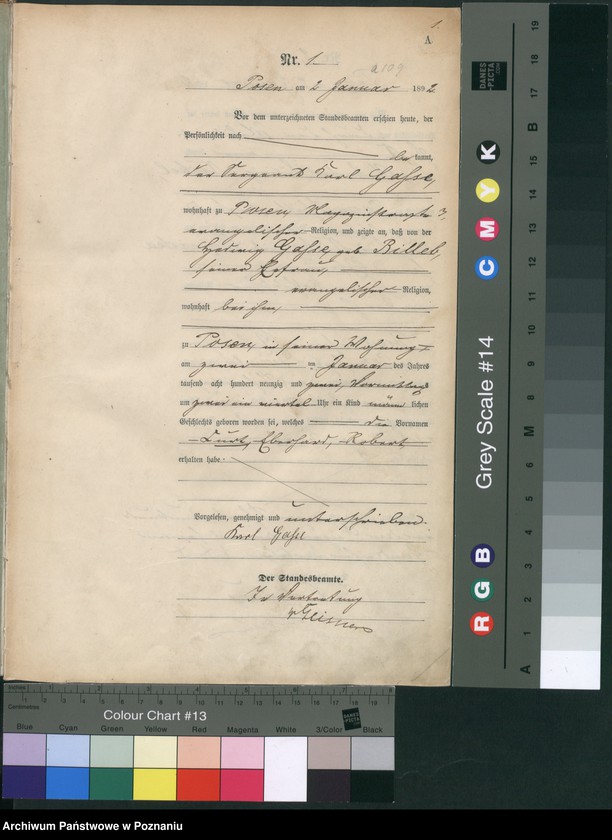 1.
A
Nr. 1
a109
Posen am 2 Januar 1892
Vor dem unterzeichneten Standesbeamten erschien heute, der
Persönlichkeit nach
be kannt,
der Sergeant Karl Gasse,
wohnhaft zu Posen, Magazinstraße 3,
evangelischer Religion, und zeigte an, daß von der
Hedwig Gasse, geb. Billeb,
seiner Ehefrau,
evangelischer Religion,
wohnhaft bei ihm,
zu Posen, in seiner Wohnung
am zwei ten Januar des Jahres
tausend acht hundert neunzig und zwei, Vormittags
um zwei ein viertel Uhr ein Kind männ lichen
Geschlechts geboren worden sei, welches die Vornamen
Curt, Eberhard, Robert
erhalten habe.
Vorgelesen, genehmigt und unterschrieben.
Karl Gasse
Der Standesbeamte.
In Vertretung
DANES
PICTA
.COM
Grey Scale #14
R G B
C M Y K
A 1 2 3 4 5 6 M 8 9 10 11 12 13 14 15 B 17 18 19
Inches 1 2 3 4 5 6 7 8
Centimetres 1 2 3 4 5 6 7 8 9 10 11 12 13 14 15 16 17 18 19
Colour Chart #13
DANES
PICTA
.COM
Blue Cyan Green Yellow Red Magenta White 3/Color Black
Archiwum Państwowe w Poznaniu